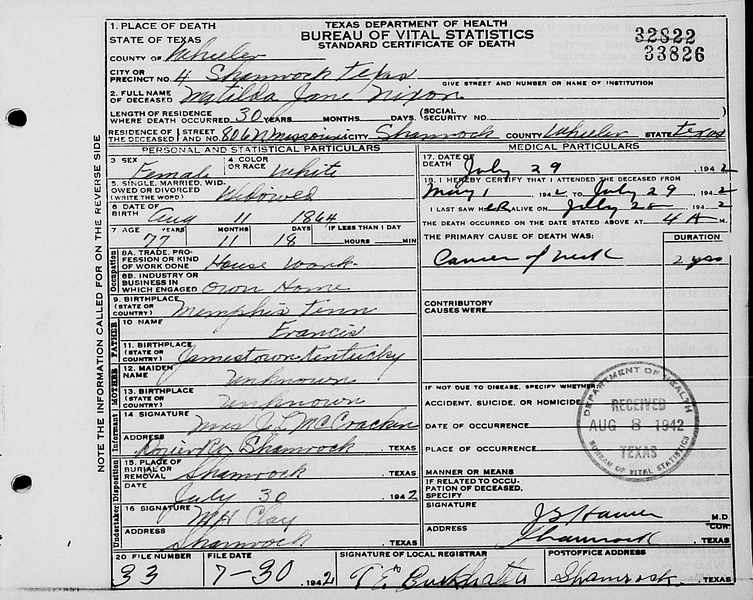 TEXAS DEPARTMENT OF HEALTH
BUREAU OF VITAL STATISTICS
STANDARD CERTIFICATE OF DEATH
32822
33826
1. PLACE OF DEATH
STATE OF TEXAS
COUNTY OF Wheeler
CITY OR PRECINCT NO. 4 Shamrock Texas
GIVE STREET AND NUMBER OR NAME OF INSTITUTION
2. FULL NAME OF DECEASED Matilda Jane Nixon
LENGTH OF RESIDENCE WHERE DEATH OCCURRED 30 YEARS MONTHS DAYS (SOCIAL SECURITY NO.
RESIDENCE OF THE DECEASED STREET AND NO. 806 N Missouri CITY Shamrock COUNTY Wheeler STATE Texas
PERSONAL AND STATISTICAL PARTICULARS
3. SEX Female
4. COLOR OR RACE White
5. SINGLE, MARRIED, WIDOWED OR DIVORCED (WRITE THE WORD) Widowed
6. DATE OF BIRTH Aug 11 1864
7. AGE YEARS MONTHS DAYS IF LESS THAN 1 DAY
77 11 18 HOURS MIN
8A. TRADE, PROFESSION OR KIND OF WORK DONE House Work
8B. INDUSTRY OR BUSINESS IN WHICH ENGAGED Own Home
9. BIRTHPLACE (STATE OR COUNTRY) Memphis Tenn
10. NAME Francis
11. BIRTHPLACE (STATE OR COUNTRY) Jamestown Kentucky
12. MAIDEN NAME Unknown
13. BIRTHPLACE (STATE OR COUNTRY) Unknown
14 SIGNATURE Mrs J L McCracken
ADDRESS Shamrock TEXAS
15. PLACE OF BURIAL OR REMOVAL Shamrock
DATE July 30 1942
16 SIGNATURE M H Clay
ADDRESS Shamrock TEXAS
MEDICAL PARTICULARS
17. DATE OF DEATH July 29 1942
18. I HEREBY CERTIFY THAT I ATTENDED THE DECEASED FROM
May 1 1942 TO July 29 1942
I LAST SAW HER ALIVE ON July 28 1942
THE DEATH OCCURRED ON THE DATE STATED ABOVE AT 4 A M.
THE PRIMARY CAUSE OF DEATH WAS: DURATION
Cancer of neck 2 yrs
CONTRIBUTORY CAUSES WERE
IF NOT DUE TO DISEASE, SPECIFY WHETHER:
ACCIDENT, SUICIDE, OR HOMICIDE
DATE OF OCCURRENCE
PLACE OF OCCURRENCE
MANNER OR MEANS
IF RELATED TO OCCUPATION OF DECEASED, SPECIFY
SIGNATURE M.D.
COR.
ADDRESS Shamrock TEXAS
DEPARTMENT OF HEALTH
RECEIVED
AUG 8 1942
TEXAS
BUREAU OF VITAL STATISTICS
20 FILE NUMBER 33
FILE DATE 7-30 1942
SIGNATURE OF LOCAL REGISTRAR
POSTOFFICE ADDRESS Shamrock TEXAS
NOTE THE INFORMATION CALLED FOR ON THE REVERSE SIDE
Occupation
FATHER
MOTHER
Informant
Disposition
Undertaker